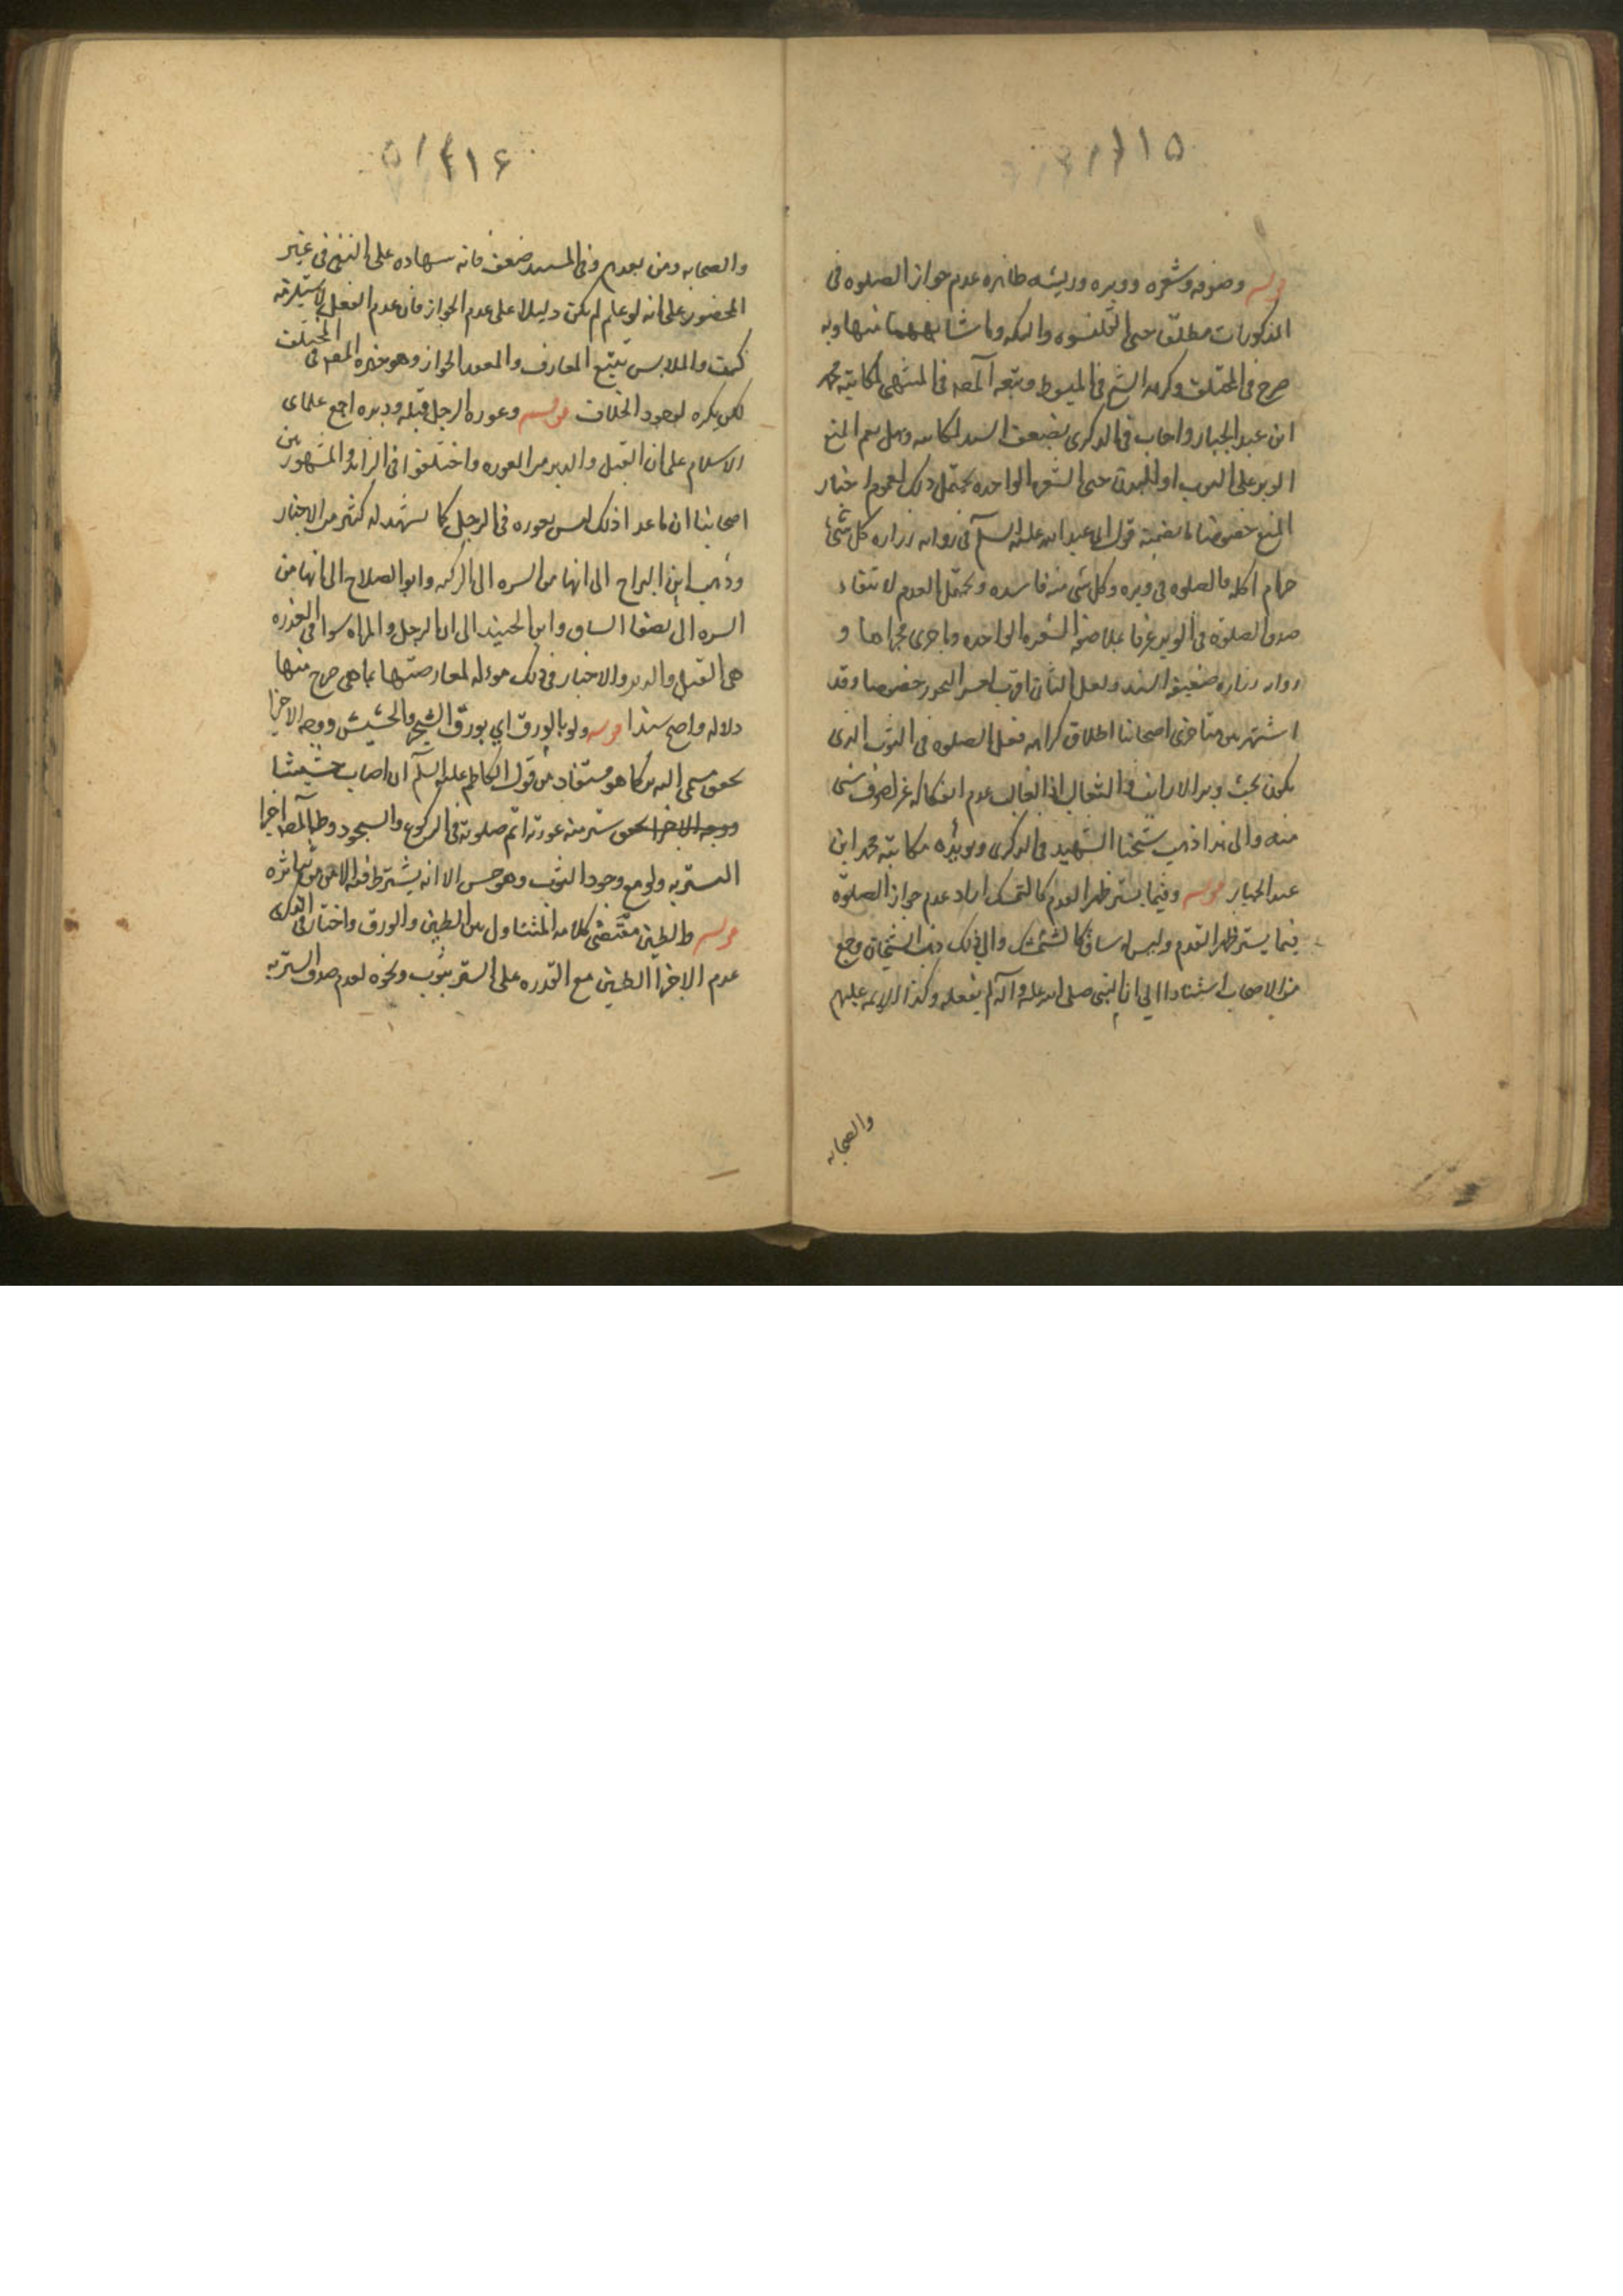 ١١٥
قوله وصوفه وشعره ووبره وريشه ظاهره عدم جواز الصلوه فى
المذكورات مطلقا حتى القلنسوه والتكه وما شابههما منها وبه
صرح فى المختلف وكرهه الشيخ فى المبسوط وتبعه المصه فى المنتهى لمكاتبة محمد
ابن عبد الجبار واجاب فى الذكرى بضعف السند المكاتبه وهل يعم المنع
الوبر على الثوب او البدن حتى الشعره الواحده يحتمل ذلك لعموم اخبار
المنع خصوصا ما تضمنه قول ابى عبد الله عليه السلم فى روايه زراره كل شئ
حرام اكله فالصلوه فى وبره وكل شى منه فاسده ويحتمل العدم لانتفاء
صدق الصلوة فى الوبر عرفا بملاصقه الشعره الواحده وما جرى مجراها و
روايه زراره ضعيفه السند ولعل الثانى اقرب
خصوصا وقد
اشتهر بين متاخرى اصحابنا اطلاق كراهه فعل الصلوه فى الثوب الذى
يكون تحت وبر الارانب والثعالب اذ الغالب عدم انفكاكه عن لصوق شى
منه والى هذا ذهب شيخنا الشهيد فى الذكرى ويويده مكاتبة محمد ابن
عبد الجبار قوله وفيما يستر ظهر القدم كالشمشك اراد عدم جواز الصلوة
فيما يستر ظهر القدم وليس له ساق كالشمشك والى ذلك ذهب الشيخان وجمع
من الاصحاب استنادا الى ان النبى صلى الله عليه وآله لم يفعله وكذا الايمه عليهم
والصحابه
١١٦
والصحابه ومن بعدهم وفى المستند ضعف فانه شهاده على النفى فى غير
المحصور على انه لو علم لم يكن دليلا على عدم الجواز فان عدم الفعل لا يستلزمه
كيف والملابس تتبع المعارف والمعتمد الجواز وهو خيره المصه فى المختلف
لكن يكره لوجود الخلاف قوله وعوره الرجل قبله ودبره اجمع علماى
الاسلام على ان القبل والدبر من العوره واختلفوا فى الزائد والمشهور بين
اصحابنا ان ما عدا ذلك ليس بعوره فى الرجل كما يشهد له كثير من الاخبار
وذهب ابن البراج الى انها من السره الى الركبه وابو الصلاح الى انها من
السره الى نصف الساق وابن الجنيد الى ان الرجل والمراه سوا فى العوره
هى القبل والدبر والاخبار فى ذلك مؤله لمعارضتها بما هى صرح منها
دلاله واصح سندا قوله ولو بالورق اي بورق الشجر والحشيش ووجه الاجزا
تحقق مسمى الستر كما هو مستفاد من قول الكاظم عليه السلم ان اصاب حشيشا
ووجه الاجزا تحقق ستر منه عورته اتم صلوته فى الركوع والسجود وظ المصه اجزا
الستر به ولو مع وجود الثوب وهو حسن الا انه يشترط فيه الامن من تناثره
قوله والطين مقتضى كلامه المتناول بين الطين والورق واختار فى الذكرى
عدم الاجزا الطين مع القدره على الستر بثوب ونحوه لعدم صدق الستر به